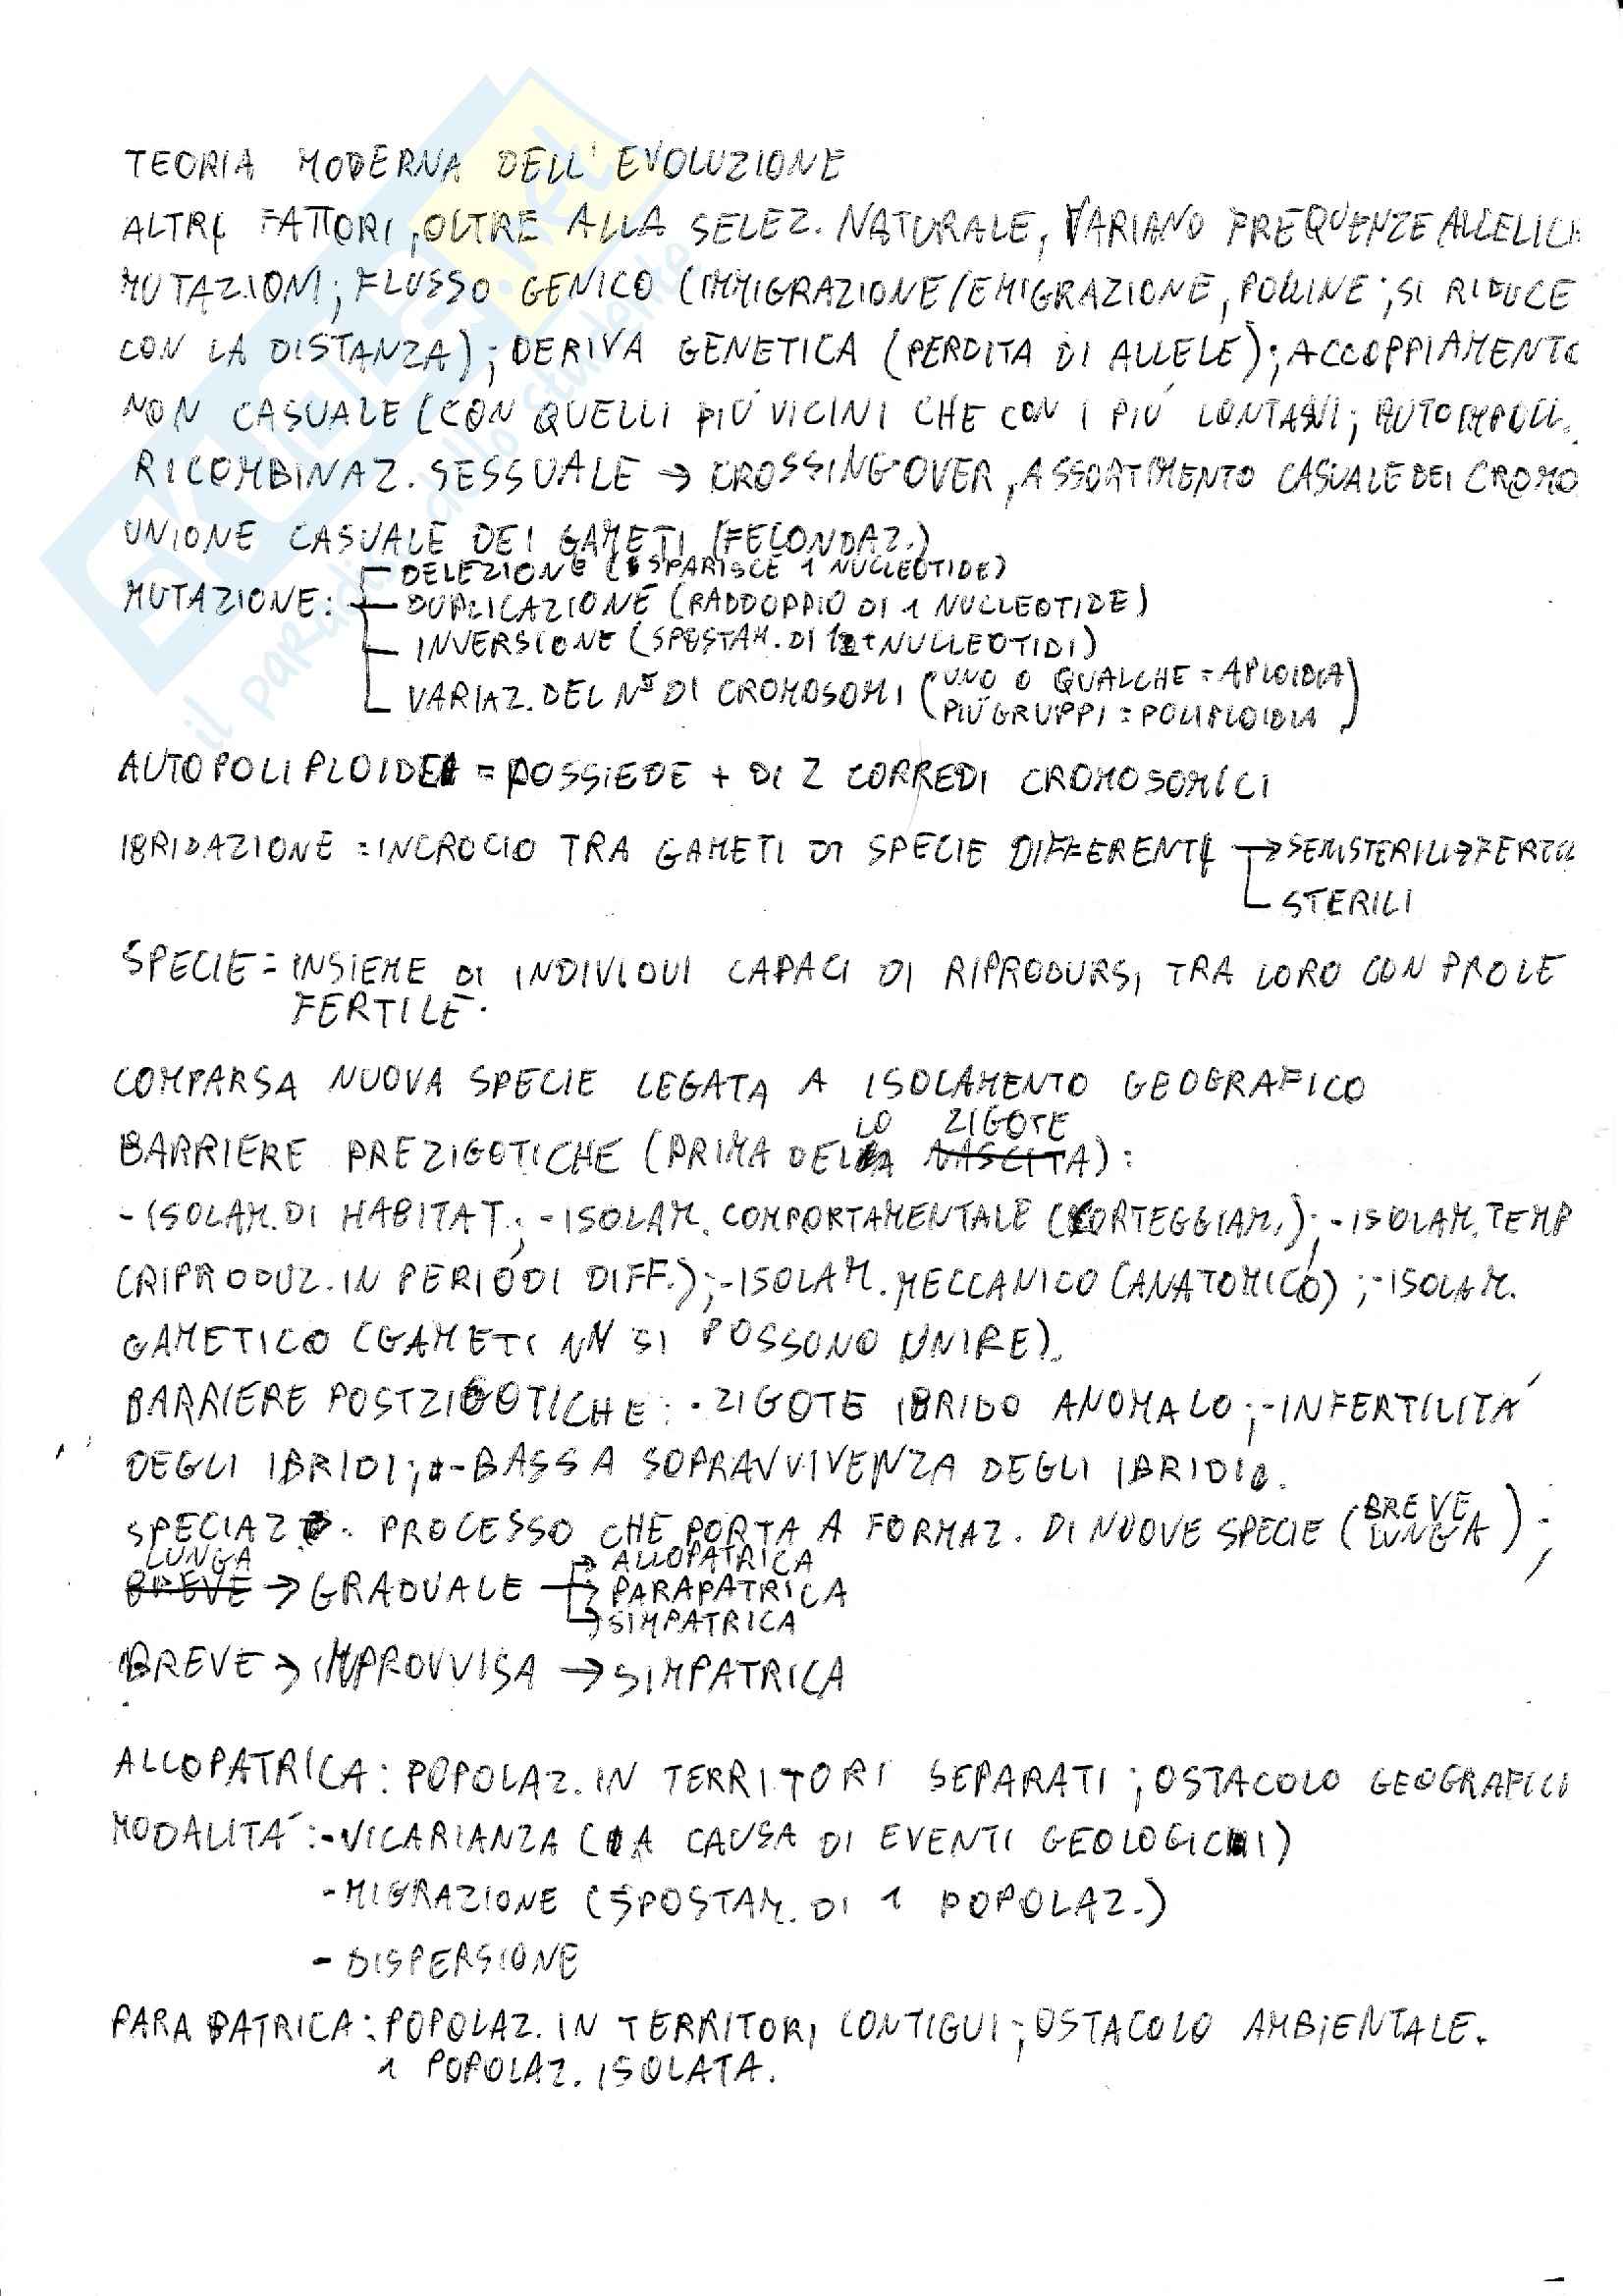 TEORIA MODERNA DELL'EVOLUZIONE
ALTRI FATTORI, OLTRE ALLA SELEZ. NATURALE, VARIANO FREQUENZE ALLELICH
MUTAZIONI; FLUSSO GENICO (IMMIGRAZIONE/EMIGRAZIONE, POLLINE; SI RIDUCE
CON LA DISTANZA); DERIVA GENETICA (PERDITA DI ALLELE); ACCOPPIAMENTO
NON CASUALE (CON QUELLI PIÙ VICINI CHE CON I PIÙ LONTANI; AUTOIMPOLL.
RICOMBINAZ. SESSUALE → CROSSING OVER, ASSORTIMENTO CASUALE DEI CROMO
UNIONE CASUALE DEI GAMETI (FECONDAZ.)
DELEZIONE (SPARISCE 1 NUCLEOTIDE)
MUTAZIONE: DUPLICAZIONE (RADDOPPIO DI 1 NUCLEOTIDE)
INVERSIONE (SPOSTAM. DI 2+ NUCLEOTIDI)
VARIAZ. DEL N° DI CROMOSOMI (UNO O QUALCHE = APLOIDIA
PIÙ GRUPPI = POLIPLOIDIA)
AUTOPOLIPLOIDE = POSSIEDE + DI 2 CORREDI CROMOSOMICI
IBRIDAZIONE = INCROCIO TRA GAMETI DI SPECIE DIFFERENTI → SEMISTERILI → FERTIL
STERILI
SPECIE = INSIEME DI INDIVIDUI CAPACI DI RIPRODURSI TRA LORO CON PROLE
FERTILE.
COMPARSA NUOVA SPECIE LEGATA A ISOLAMENTO GEOGRAFICO
LO ZIGOTE
BARRIERE PREZIGOTICHE (PRIMA DELLA NASCITA):
- ISOLAM. DI HABITAT; - ISOLAM. COMPORTAMENTALE (CORTEGGIAM.); - ISOLAM. TEMP
(RIPRODUZ. IN PERIODI DIFF.); - ISOLAM. MECCANICO (ANATOMICO); - ISOLAM.
GAMETICO (GAMETI NN SI POSSONO UNIRE).
BARRIERE POSTZIGOTICHE: - ZIGOTE IBRIDO ANOMALO; - INFERTILITÀ
DEGLI IBRIDI; - BASSA SOPRAVVIVENZA DEGLI IBRIDI.
SPECIAZ. PROCESSO CHE PORTA A FORMAZ. DI NUOVE SPECIE (BREVE
LUNGA);
LUNGA → ALLOPATRICA
BREVE → GRADUALE → PARAPATRICA
→ SIMPATRICA
BREVE → IMPROVVISA → SIMPATRICA
ALLOPATRICA: POPOLAZ. IN TERRITORI SEPARATI; OSTACOLO GEOGRAFICO
MODALITÀ: - VICARIANZA (A CAUSA DI EVENTI GEOLOGICI)
- MIGRAZIONE (SPOSTAM. DI 1 POPOLAZ.)
- DISPERSIONE
PARAPATRICA: POPOLAZ. IN TERRITORI CONTIGUI; OSTACOLO AMBIENTALE.
1 POPOLAZ. ISOLATA.